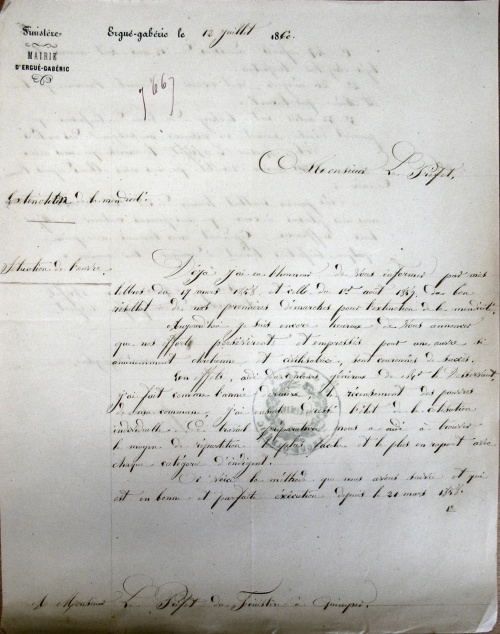 Finistère
MAIRIE
D'ERGUÉ-GABÉRIC
Ergué-gabéric le 12 juillet 1860.
766
Monsieur Le Préfet,
Extinction de la mendicité.
Situation de l'œuvre.
Déjà j'ai eu l'honneur de vous informer par mes
lettres du 17 mars 1858 et celle du 1er août 1859, du bon
résultat de nos premières démarches pour l'extinction de la mendicité.
Aujourd'hui je suis encore heureux de vous annoncer
que nos efforts persévérants et empressés pour une œuvre si
éminemment chrétienne et civilisatrice, sont couronnés de succès.
En effet, aidé des généreux de Mr le Desservant,
j'ai fait comme l'année dernière le recensement des pauvres
de la commune, j'ai ensuite dressé l'état de la cotisation
individuelle. Ce travail préparatoire nous a aidé à trouver
le moyen de répartition le plus facile et le plus en rapport avec
chaque catégorie d'indigent.
Voici la méthode que nous avons suivie et qui
est en bonne et parfaite exécution depuis le 21 mars 1858.
A Monsieur Le Préfet du Finistère à Quimper.